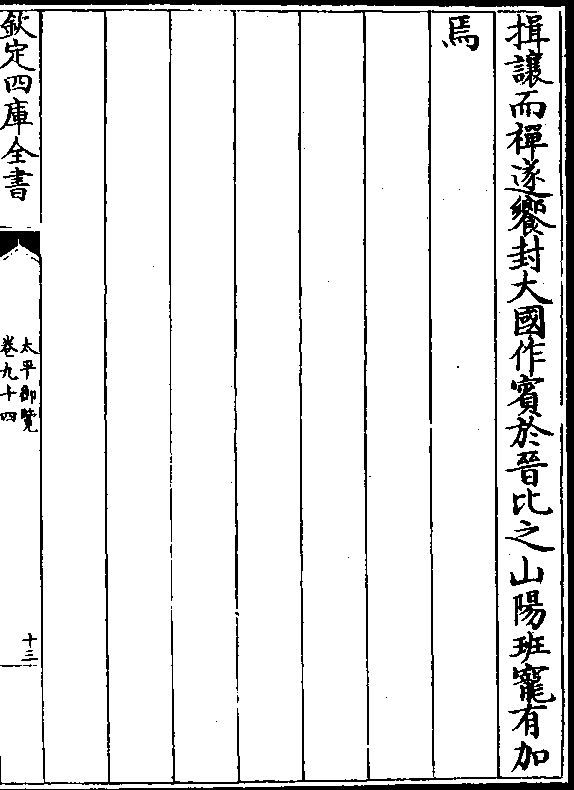 揖讓而禪遂饗封大國作賓於晉比之山陽班寵有加
焉
欽定四庫全書
太平御覽
卷九十四
十三